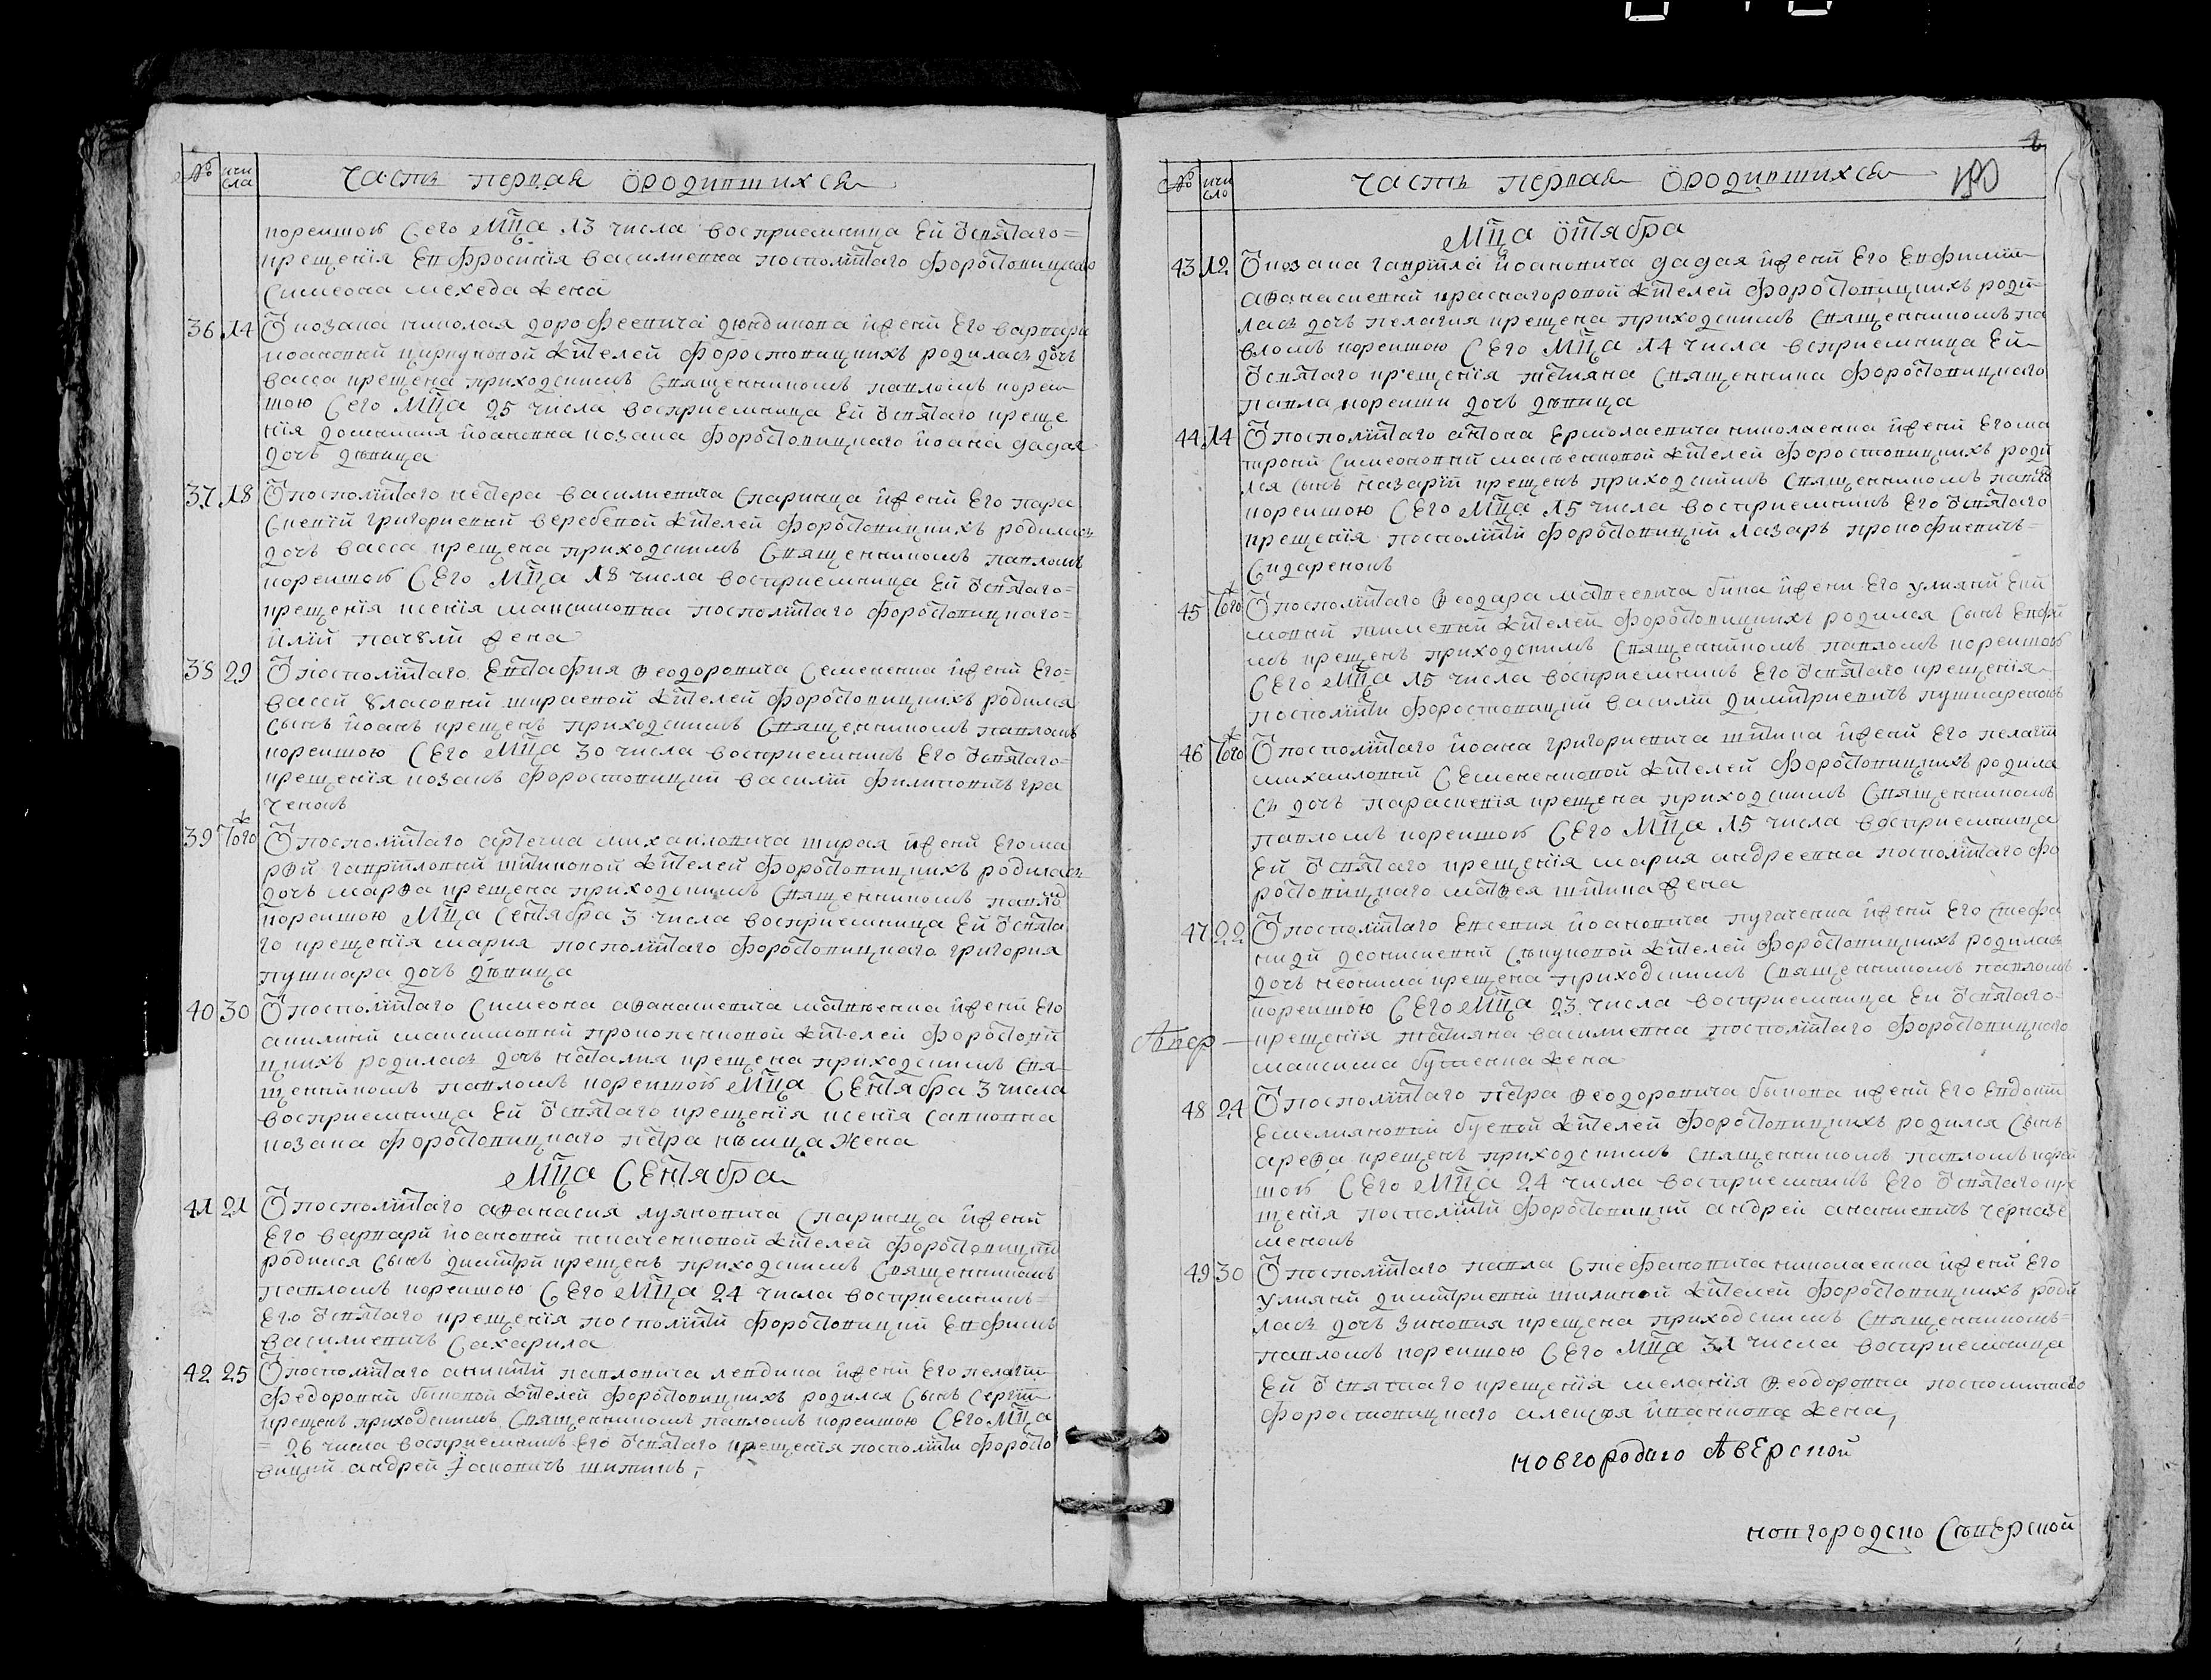 № чи
сла
Часть первая ѡродившихся
корейшою Сего Мⷭ҇ца 13 числа восприемница Ей ѿ свѧтаго=
крещенія Евфросинія василиевна посполитаго форостовицкаго
Симеона мехеда жена
36 14 Ѿ козака николая дорофеевича дюндикова и жени Его варвари
иоановни циркуновой жителей форостовицкихъ родилась дочъ
васса крещена приходскимъ Священникомъ павломъ корей
шою Сего Мⷭ҇ца 25 числа восприемница Ей ѿ святаго креще
нія домникия иоановна козака форостовицкаго иоана дадая
дочъ дѣвица
37 18 Ѿ посполитаго нестера василиевича Спаринца и жени Его пара
Скевіи григориевни веребевой жителей форостовицкихъ родилась
дочъ васса крещена приходскимъ Священникомъ павломъ
корейшою СЕго Мⷭ҇ца 18 числа восприемница Ей ѿ святаго=
крещенія ксенія максимовна посполитаго форостовицкаго=
иліи жена
38 29 Ѿ посполитаго Евстафия Ѳеодоровича Семененка и жени Его=
васси власовни шираевой жителей форостовицкихъ родился
Сынъ иоанъ крещенъ приходскимъ Священникомъ павломъ
корейшою СЕго Мⷭ҇ца 30 числа восприемникъ Его ѿ святаго=
крещенія козакъ форостовицкий василий филиповичъ гра
ченокъ
39 того ж Ѿ посполитаго артема михаиловича ширая и жени Его ма
рѳи гавриіловни шитиковой жителей форостовицкихъ родилась
дочъ марѳа крещена приходскимъ Священникомъ павломъ
корейшою Мⷭ҇ца Сентября 3 числа восприемница Ей ѿ свята
го крещенія мария посполитаго форостовицкаго григория
пушкара дочъ дѣвица
40 30 Ѿ посполитаго Симеона аѳанасиевича матвѣенка и жени Его
акилини максимовни прокопенковой жителей форостови
цкихъ родилась дочъ наталия крещена приходскимъ Свя
щенникомъ павломъ корейшою Мⷭ҇ца СЕнтября 3 числа
восприемница Ей ѿ святаго крещенія ксенія Савионна
козака форостовицкаго петра кѣмица жена
Мⷭ҇ца СЕнтября
41 21 Ѿ посполитаго аѳанасия лукяновича Спаринца и жени
Его варвари иоановни ткаченковой жителей форостовицких
родился Сынъ димитрий крещенъ приходскимъ Священникомъ
павломъ корейшою СЕго Мⷭ҇ца 24 числа восприемникъ=
Его ѿ святаго крещенія посполити форостовицкий Евфимъ
василиевичъ Сахарила
42 25 Ѿ посполитаго аникити павловича левдика и жени Его пелагии
федоровни биковой жителей форостовицкихъ родился Сынъ Сергий
крещенъ приходскимъ Священникомъ павломъ корейшою СЕго Мⷭ҇ца
= 26 числа восприемникъ Его ѿ святаго крещенія посполити форосто
вицкий андрей Іаковичъ шитикъ,
№ чи
сло
Часть первая ѡродившихся
Мⷭ҇ца ѡктября
43 12 Ѿ козака гавриіла иоановича дадая и жени Его Евфимии
аѳанасиевни краснагоровой жителей форостовицкихъ роди
лась дочъ пелагия крещена приходскимъ Священникомъ па
вломъ корейшою СЕго Мⷭ҇ца 14 числа всприемница Ей
ѿ святаго крещенія татияна Священника форостовицкаго
павла корейши дочъ дѣвица
44 14 Ѿ посполитаго антона Ермолаевича николаенка и жени Его ма
трони Симеоновни маньенковой жителей форостовицкихъ роди
лся Сынъ назарий крещенъ приходскимъ Священникомъ павло
корейшою СЕго Мⷭ҇ца 15 числа восприемникъ Его ѿ святаго
крещенія посполити форостовицкий лазаръ прокофиевичъ=
Сидаренокъ
45 того ж Ѿ посполитаго Ѳеодара матвеевича бика и жени Его улияни Еки
мовни жители форостовицкихъ родился Сынъ Евфи
мъ крещенъ приходскимъ Священникомъ павломъ корейшою
СЕго Мⷭ҇ца 15 числа восприемникъ Его ѿ святаго крещенія
посполити форостовицкий василий димитриевичъ пушкаренокъ
46 того ж Ѿ посполитаго иоана григориевича шитика и жени Его пелагии
михаиловни СЕмененковой жителей форостовицкихъ родила
сь дочъ параскевія крещена приходскимъ Священникомъ
павломъ корейшою СЕго Мⷭ҇ца 15 числа восприемница
Ей ѿ святаго крещенія мария андреевна посполитаго фо
ростовицкаго матѳея шитика жена
47 22 Ѿ посполитаго Евсевия иоановича пугаченка и жени Его Стефа
ниди деонисиевни Сѣкуновой жителей форостовицкихъ родилась
дочъ неонила крещена приходскимъ Священникомъ павломъ
корейшою СЕго Мⷭ҇ца 23 числа восприемница Ей ѿ святаго=
Авер— крещенія татияна василиевна посполитаго форостовицкаго
максима бутенка жена
48 24 Ѿ посполитаго петра Ѳеодоровича бикова и жени Его Евдокии
Емелияновни буевой жителей форостовицкихъ родился Сынъ
ареѳа крещенъ приходскимъ Священникомъ павломъ корей
шою СЕго Мⷭ҇ца 24 числа восприемникъ Его ѿ святаго кре
щенія посполити форостовицкий андрей ананиевичъ черназе
менокъ
49 30 Ѿ посполитаго павла Стефановича николаенка и жени Его
улияни димитриевни шиликой жителей форостовицкихъ роди
лась дочъ зиновия крещена приходскимъ Священникомъ=
павломъ корейшою СЕго Мⷭ҇ца 31 числа восприемница
Ей ѿ святаго крещенія меланія Ѳеодоровна посполитаго
форостовицкаго алексѣя иванкова жена,
новгородко Аверской
новгородско СѣвЕрской